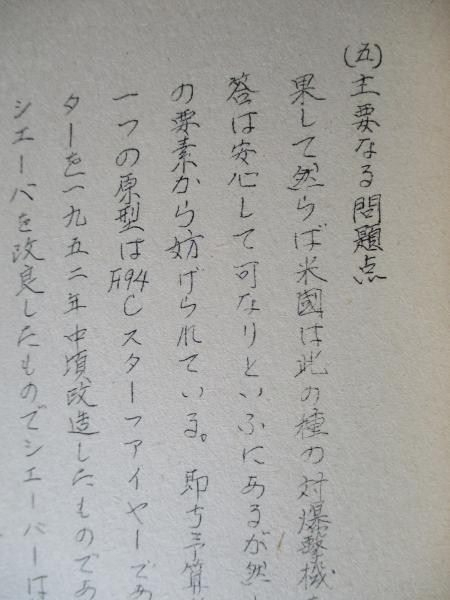 (五)主要なる問題点
果して然らば米國は此の種の対爆撃機
答は安心して可なりといふにあるが然
の要素から妨げられている。即ち予算
一つの原型はF94Cスターファイヤーであ
ターを一九五二年中頃改造したものであ
シエーバを改良したものでシエーバーは